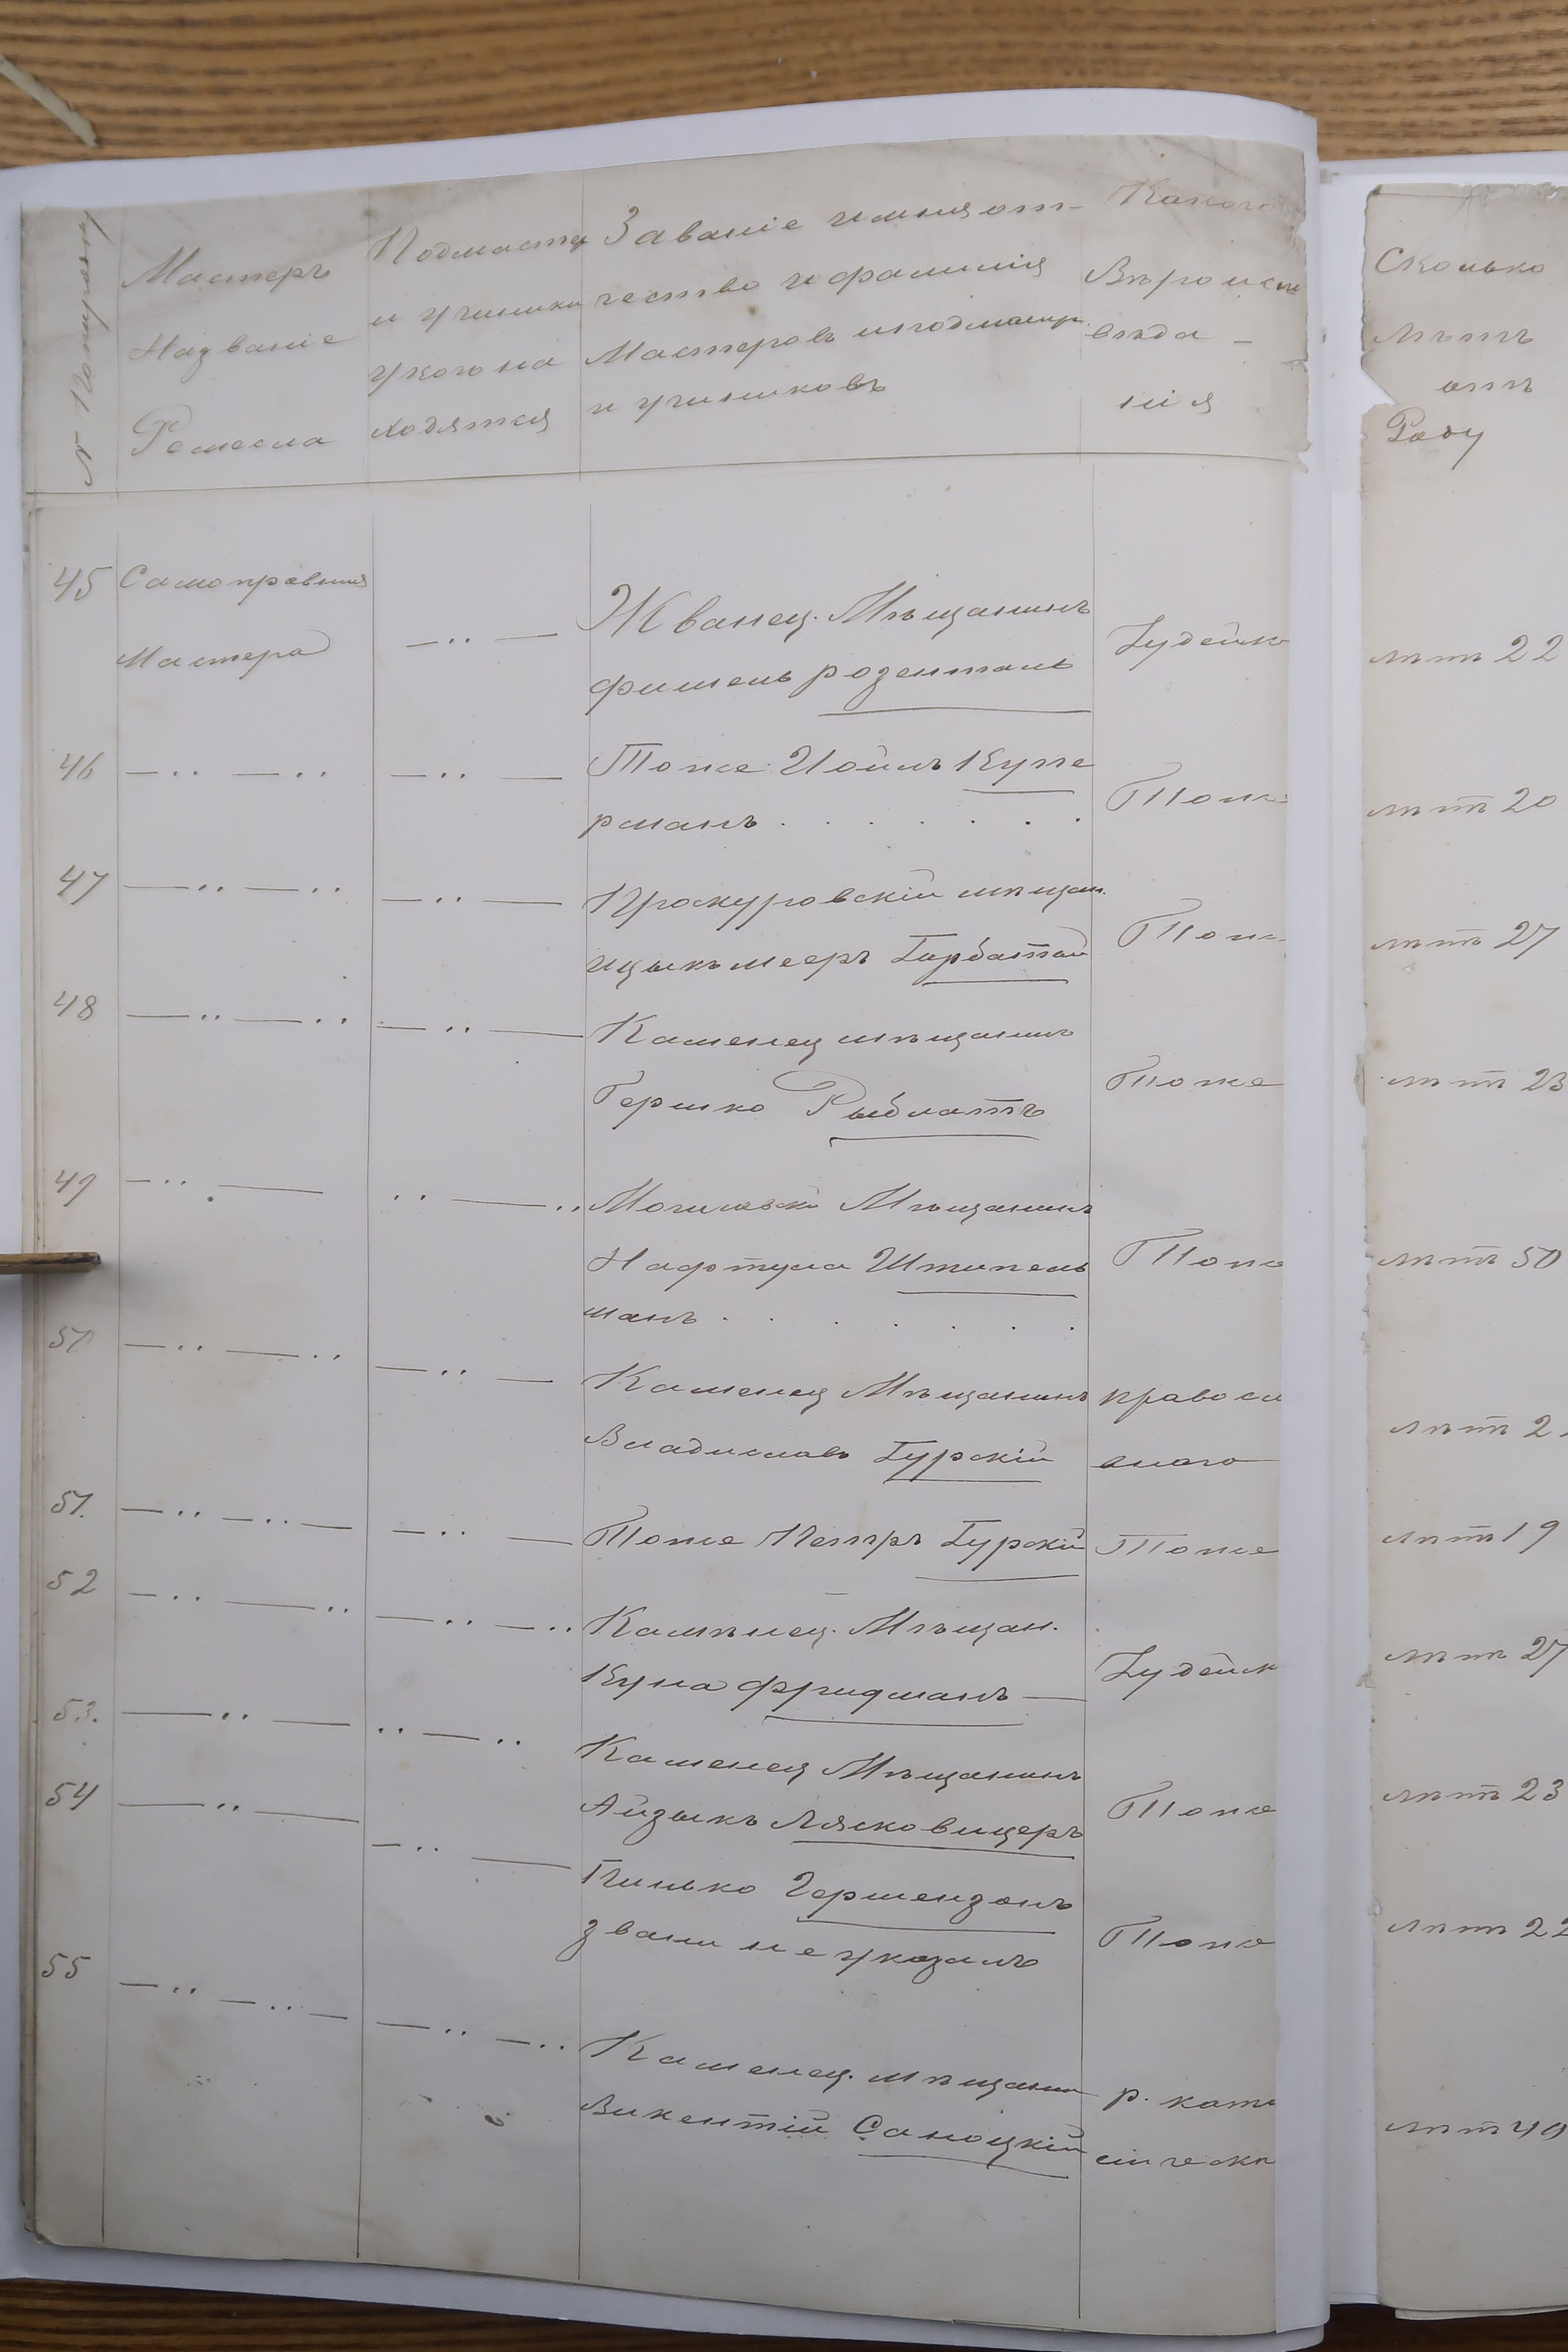 № Попорядку
Мастеръ
Название
Ремесла
Подмастер
и ученики
у кого на
ходятся
Звание имя от-
чество и фамилия
Мастеровъ и подмастр.
и учениковъ
Какого
Вероиспо
веда -
нія
Сколько
летъ
отъ
Роду
45 Самоправния Жванец. Мѣщанинъ
Мастера —··— фишель розенталь Іудейск летъ 22
46 —·· —·· —·· — Тоже Иойлъ Купе
рманъ . . . . . . . Тоже летъ 20
47 —·· —·· —·· — Проскуровскій мѣщан.
ицыкъ мееръ Горбатай Тоже летъ 27
48 —·· —·· —·· — Каменец мѣщанинъ
Гершко Рыблатъ Тоже летъ 23
49 —·· — ·· —·· Могилевски Мѣщанинъ
Нафтула Штипель Тоже летъ 50
манъ . . . . . . .
50 —·· —·· —·· — Каменец Мѣщанинъ правосл
Владиславъ Гурскій внаго летъ 2
51. —·· —·· — —·· — Тоже Петръ Гурскій Тоже летъ 19
52 —·· —·· —·· —·· Камѣнец. Мѣщан.
Куна фридманъ — Іудейск летъ 27
53. —·· — ·· —·· Каменец Мѣщанинъ
Айзыкъ Лясковицеръ Тоже летъ 23
54 —·· — —·· — Пинько Гершензонъ
звани не указалъ Тоже летъ 22
55 —·· —·· — —·· —·· Каменец. мѣщанин р. като
Викентій Саноцкій лическо летъ 40